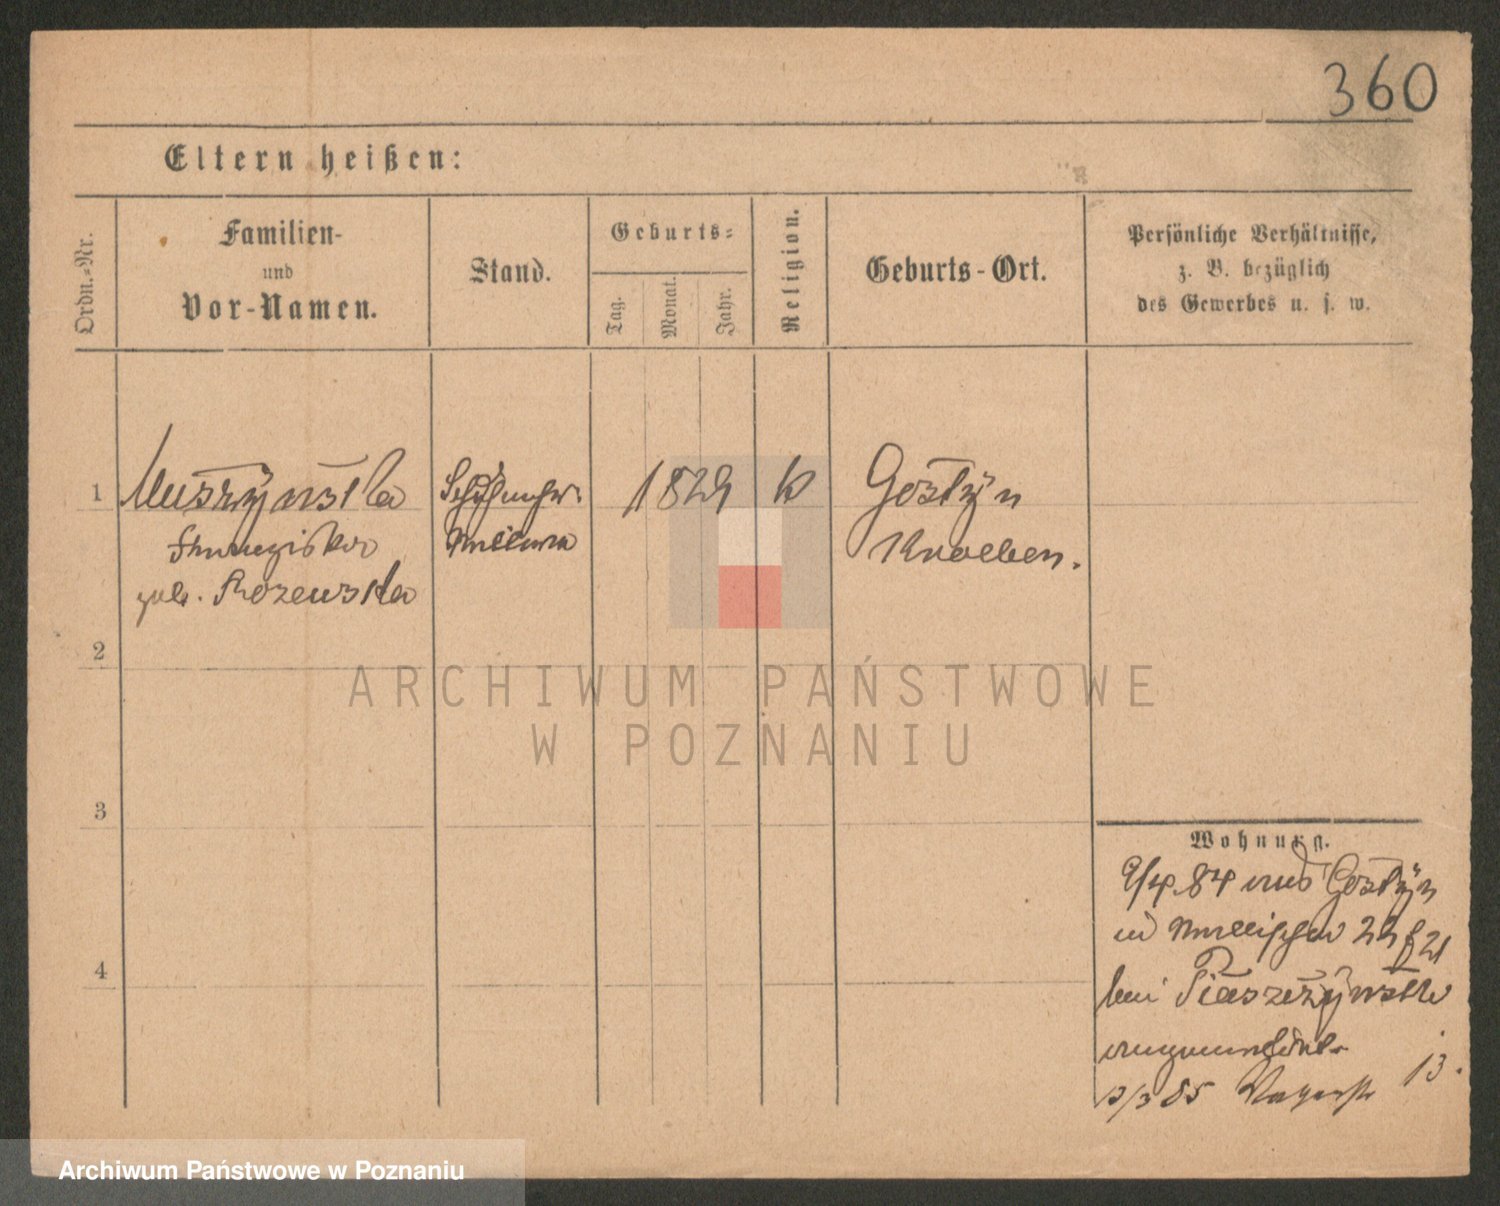 360
Eltern heißen:
Ordn.=Nr.
Familien-
und
Vor-Namen.
Stand.
Geburts=
Tag.
Monat.
Jahr.
Religion.
Geburts-Ort.
Persönliche Verhältnisse,
z. B. bezüglich
des Gewerbes u. s. w.
1
Muszyńska
Franziska
geb. Rozewska
1829
k
Gostÿn
Kroeben.
2
3
4
Wohnung.
9/4 84 aus Gostÿn
in Wallischei 22 f 21
bei Piaszczyńska
angemeldet
13/3 85 Wagerstr 13.
ARCHIWUM PAŃSTWOWE
W POZNANIU
Archiwum Państwowe w Poznaniu